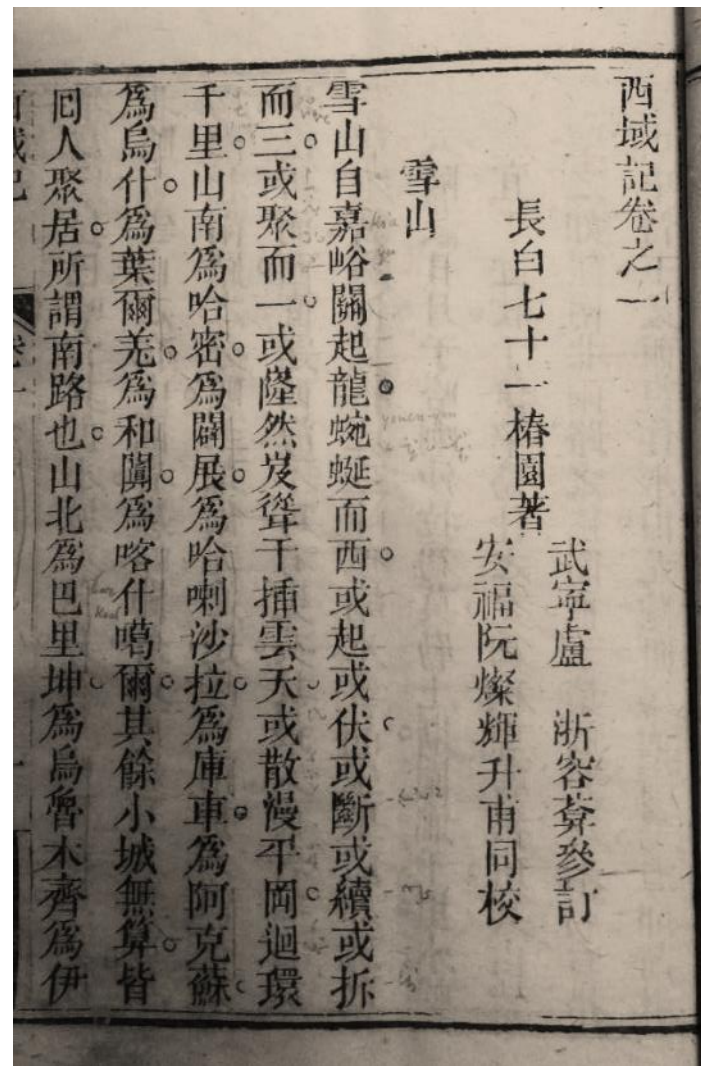 西域記卷之一
長白七十一椿園著
武寧盧 浙容葊參訂
安福阮燦輝升甫同校
雪山
雪山自嘉峪關起龍蜿蜒而西或起或伏或斷或續或拆
而三或聚而一或隆然岌聳干揷雲天或散漫平岡迴環
千里山南爲哈密爲闢展爲哈喇沙拉爲庫車爲阿克蘇
爲烏什爲葉爾羌爲和闐爲喀什噶爾其餘小城無算皆
囘人聚居所謂南路也山北爲巴里坤爲烏魯木齊爲伊
卷一